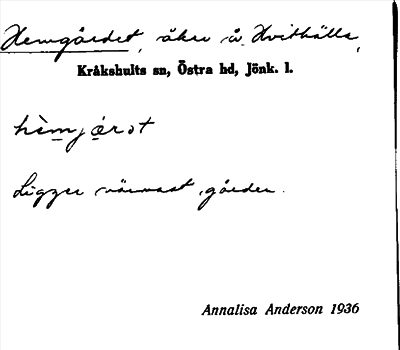 Hemgärdet, åker å Hvithälla,
Kråkshults sn, Östra hd, Jönk. l.
hèmjárət
Ligger närmast gården.
Annalisa Anderson 1936